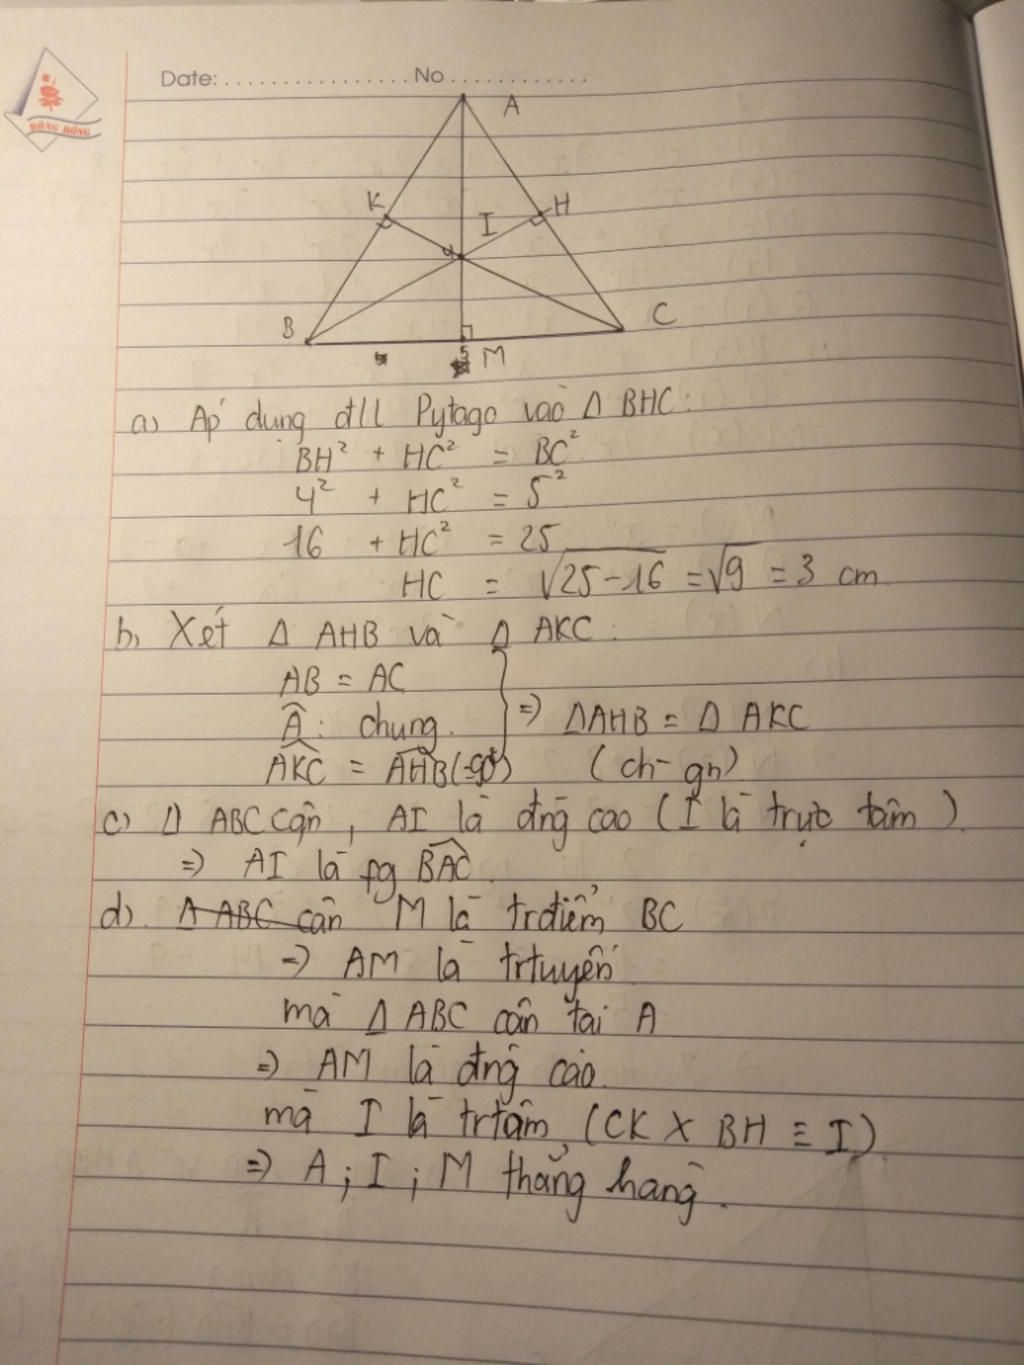 HỒNG HỒNG
Date: ................ No ............
A
K
H
I
4
B
C
5
M
a) Áp dụng đ/l Pytago vào Δ BHC:
BH² + HC² = BC²
4² + HC² = 5²
16 + HC² = 25
HC = √25-16 = √9 = 3 cm
b, Xét Δ AHB và Δ AKC:
AB = AC
Â: chung.
⇒ ΔAHB = Δ AKC
AKC = AHB (=90°)
(ch-gn)
c) Δ ABC cân, AI là đng cao (I là trực tâm)
⇒ AI là pg BAC.
d). Δ ABC cân M là trđiểm BC
⇒ AM là trtuyến
mà Δ ABC cân tại A
⇒ AM là đng cao.
mà I là trtâm, (CK X BH ≡ I)
⇒ A; I; M thẳng hàng.